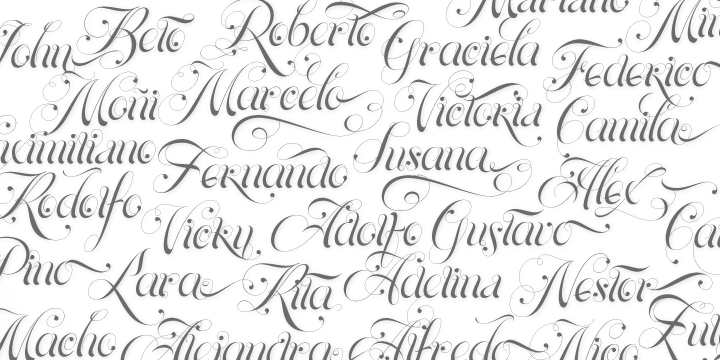 Mariano
John Beto Roberto Graciela
Federico
Moñi Marcelo Victoria Camila
Maximiliano Fernando Susana
Rodolfo Alex
Vicky Adolfo Gustavo
Pino Lara Rita Adelina Nestor
Macho Alejandra Alfredo Nico